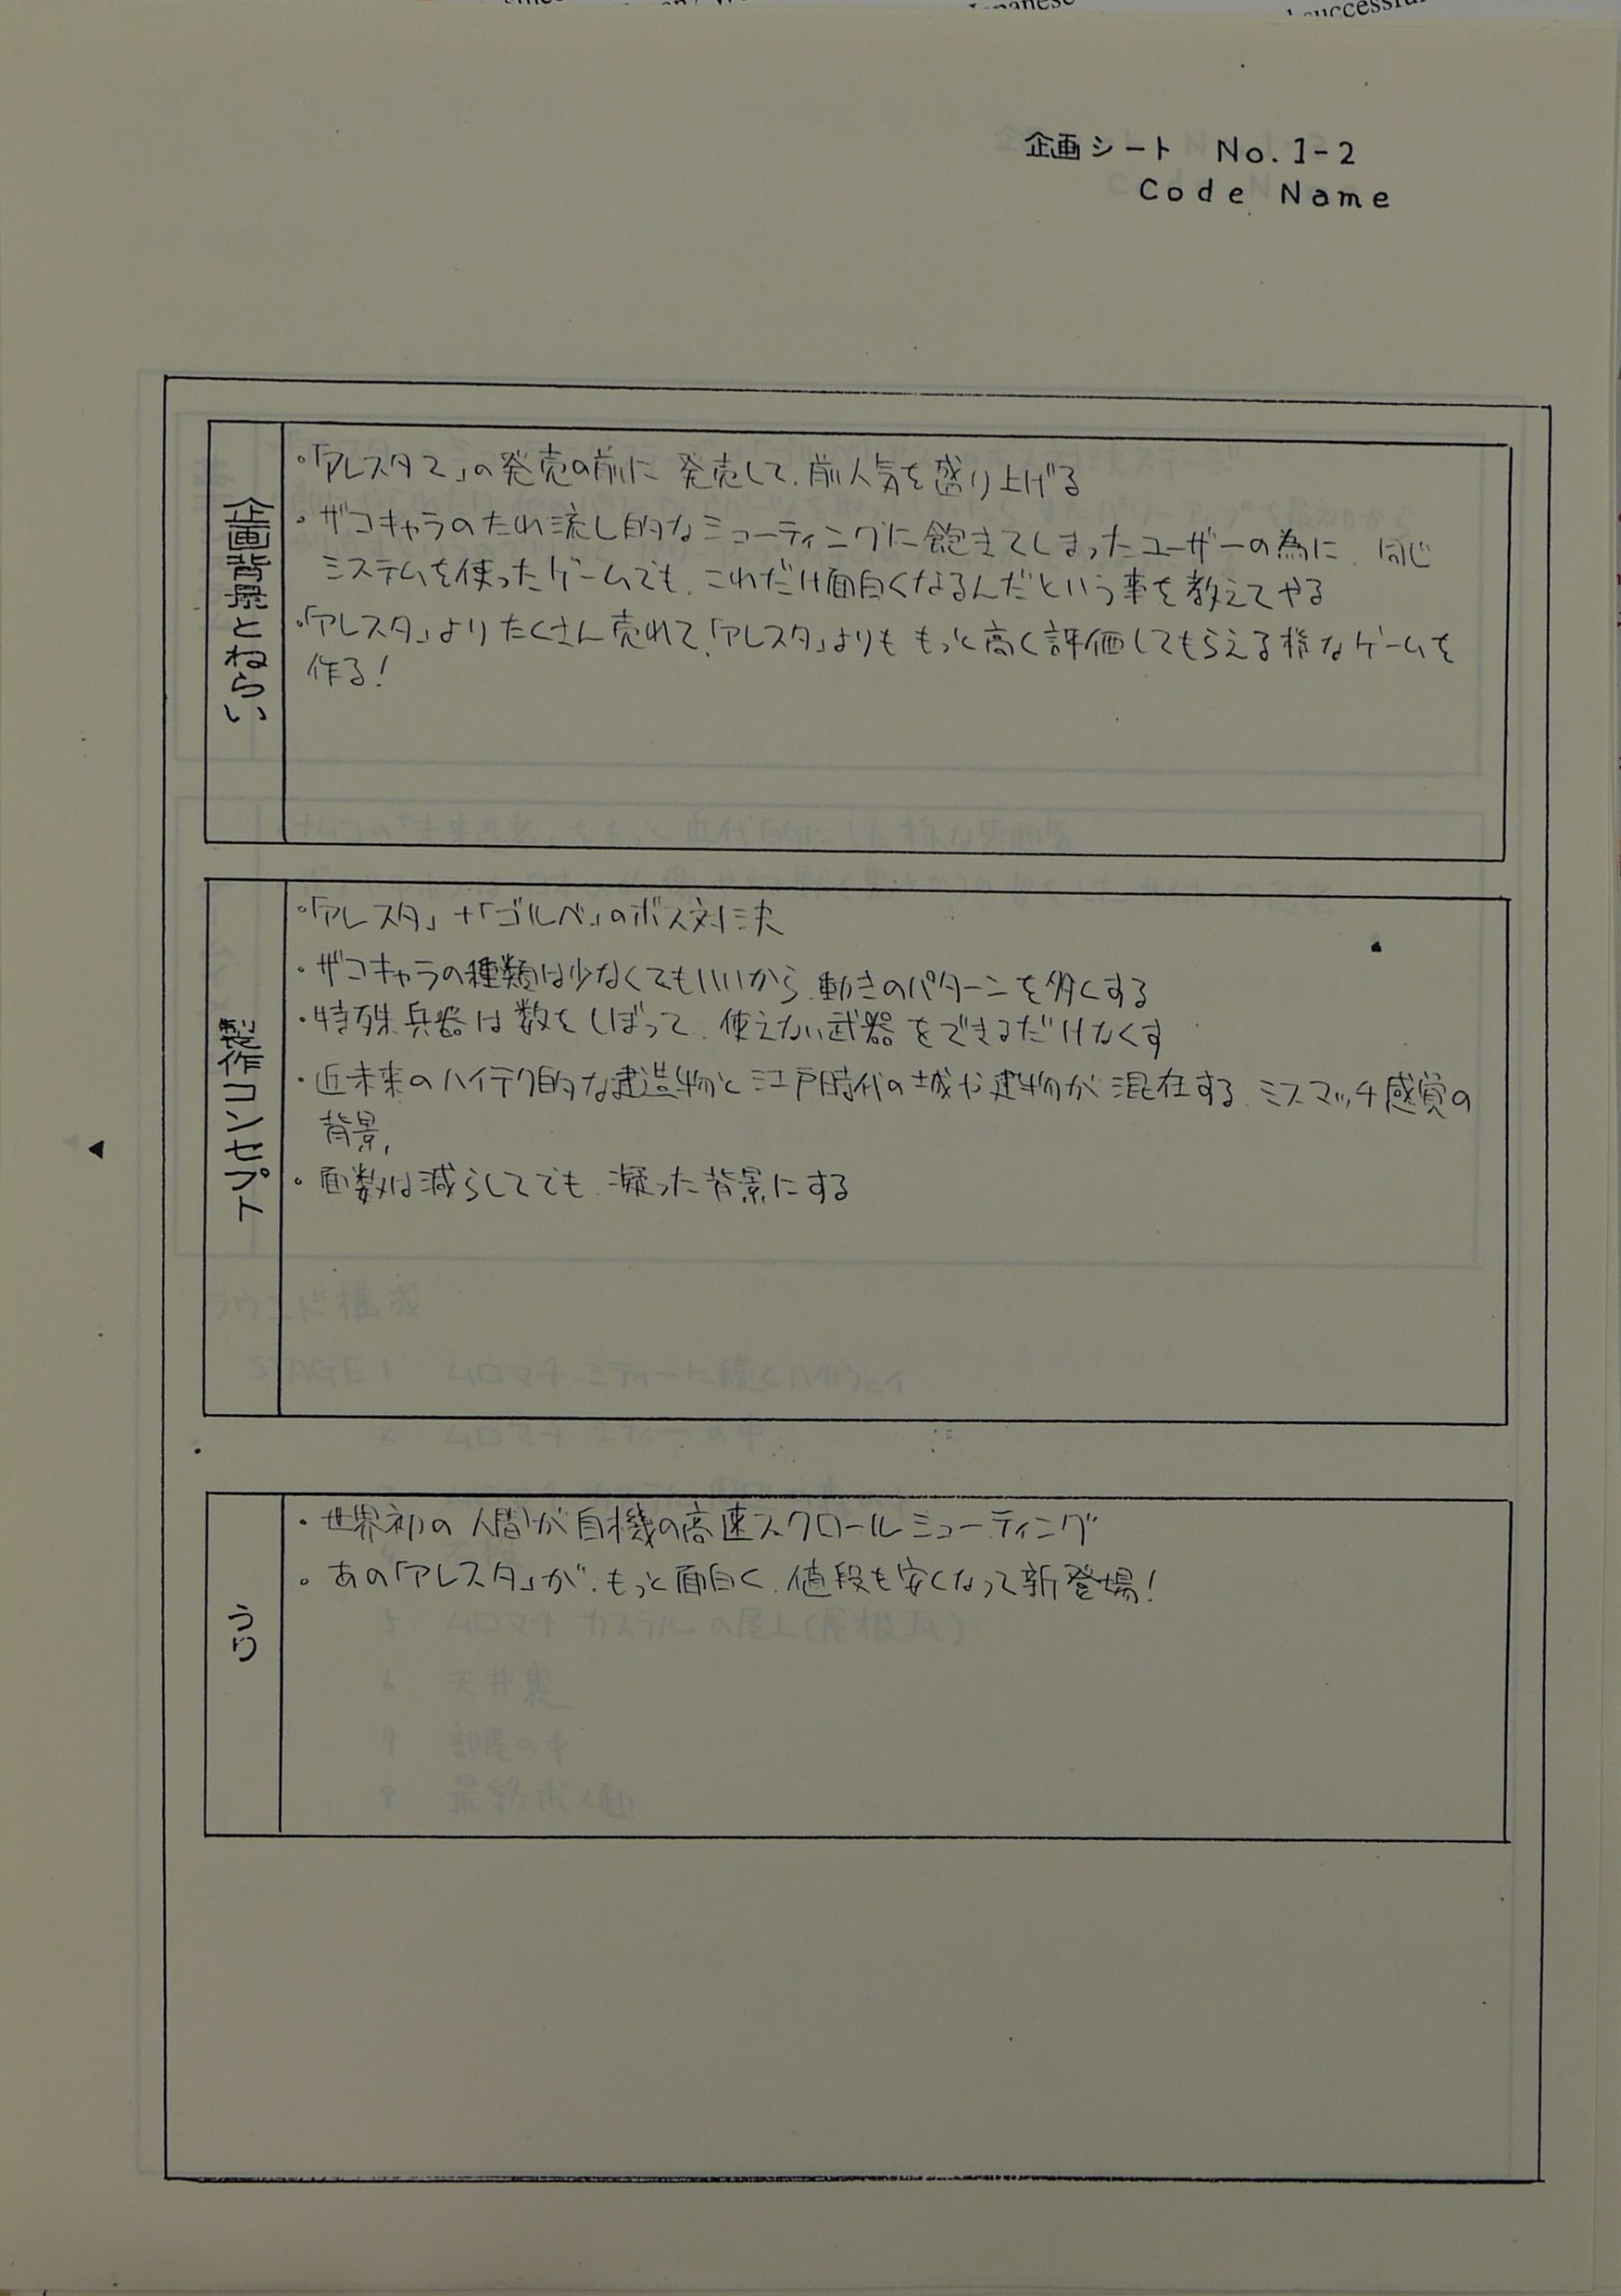 企画シート No.1-2
Code Name
企画背景とねらい
・「アレスタ2」の発売の前に発売して、前人気を盛り上げる
・ザコキャラのたれ流し的なシューティングに飽きてしまったユーザーの為に、同じ
システムを使ったゲームでも、これだけ面白くなるんだという事を教えてやる
・「アレスタ」よりたくさん売れて、「アレスタ」よりももっと高く評価してもらえる様なゲームを
作る!
製作コンセプト
・「アレスタ」+「ゴルベ」のボス対決
・ザコキャラの種類は少なくてもいいから、動きのパターンを多くする
・特殊兵器は数をしぼって、使えない武器をできるだけなくす
・近未来のハイテク的な建造物と江戸時代の城や建物が混在する、ミスマッチ感覚の
背景、
・面数は減らしてでも、凝った背景にする
うり
・世界初の人間が自機の高速スクロールシューティング
・あの「アレスタ」が、もっと面白く、値段も安くなって新登場!
ラウンド構成
STAGE 1 ムロマチシティーに続くハイウェイ
2 ムロマチシティーの中
5 ムロマチカステルの屋上(屋根瓦)
6 天井裏
7 部屋の中
8 最終ボス面